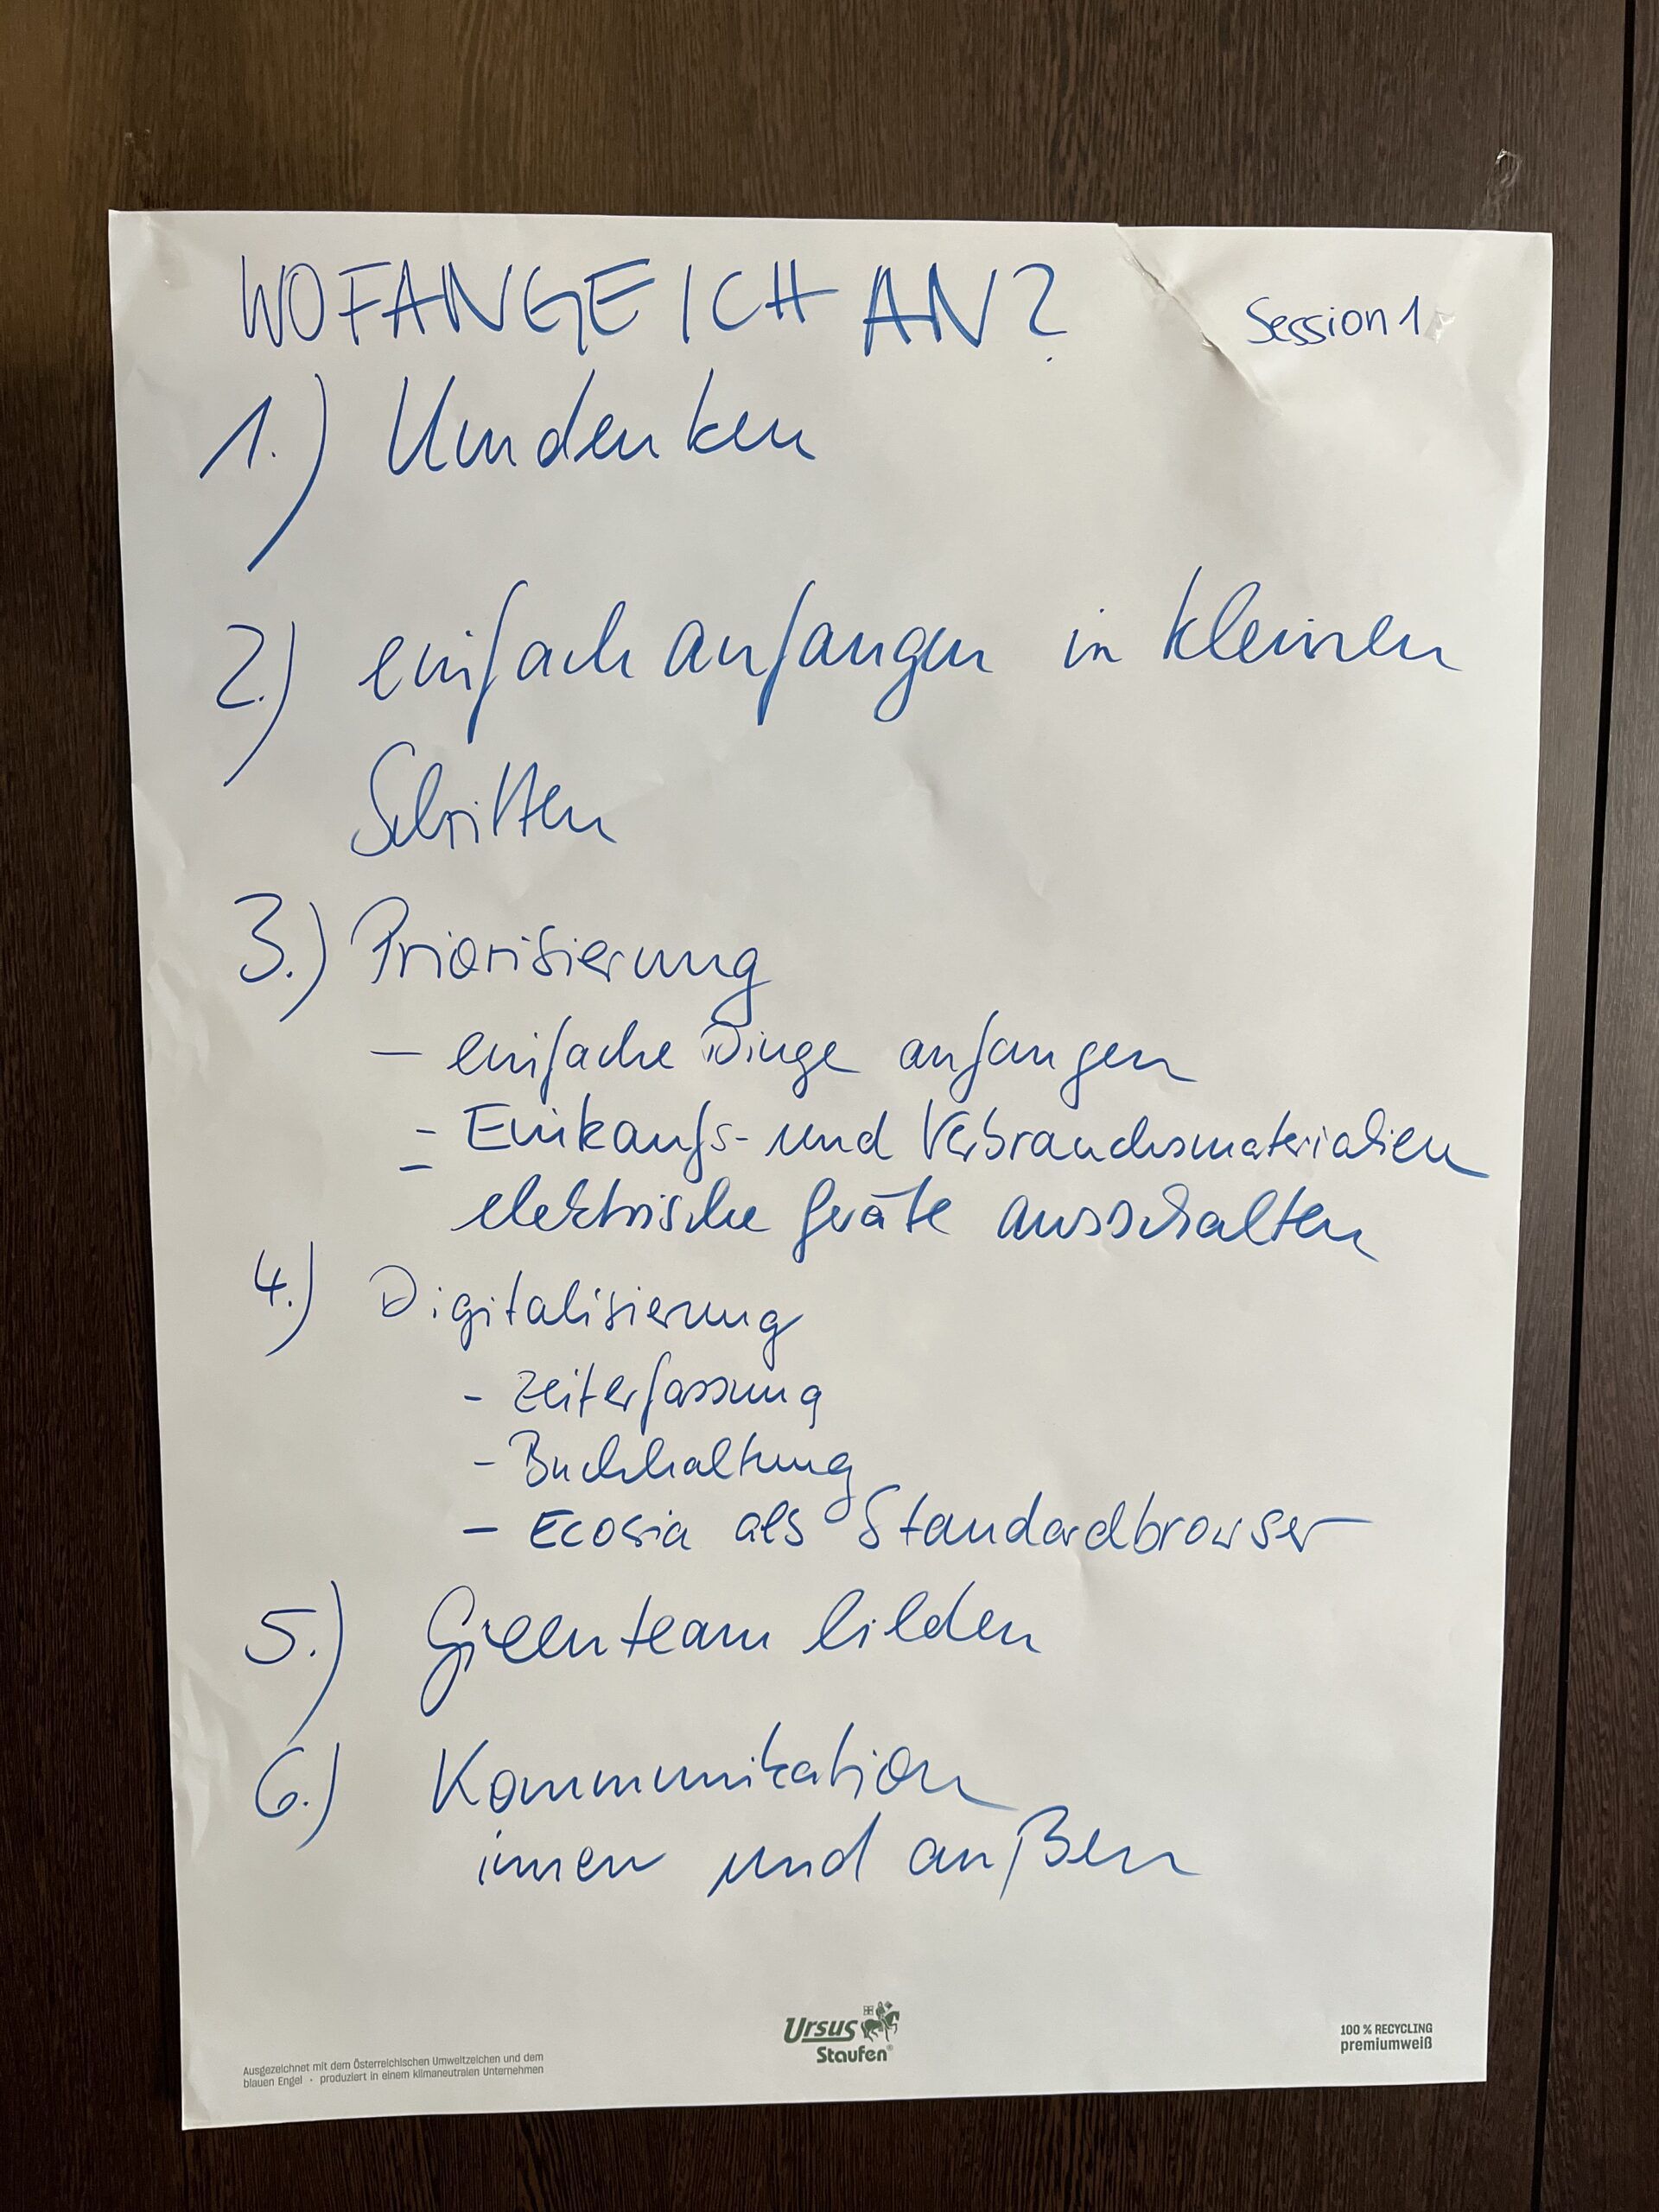 WO FANGE ICH AN?
Session 1
1.) Umdenken
2.) einfach anfangen in kleinen
Schritten
3.) Priorisierung
– einfache Dinge anfangen
- Einkaufs- und Verbrauchsmaterialien
– elektrische Geräte ausschalten
4.) Digitalisierung
- Zeiterfassung
- Buchhaltung
– Ecosia als Standardbrowser
5.) Greenteam bilden
6.) Kommunikation
innen und außen
Ursus
Staufen®
100 % RECYCLING
premiumweiß
Ausgezeichnet mit dem Österreichischen Umweltzeichen und dem
blauen Engel · produziert in einem klimaneutralen Unternehmen